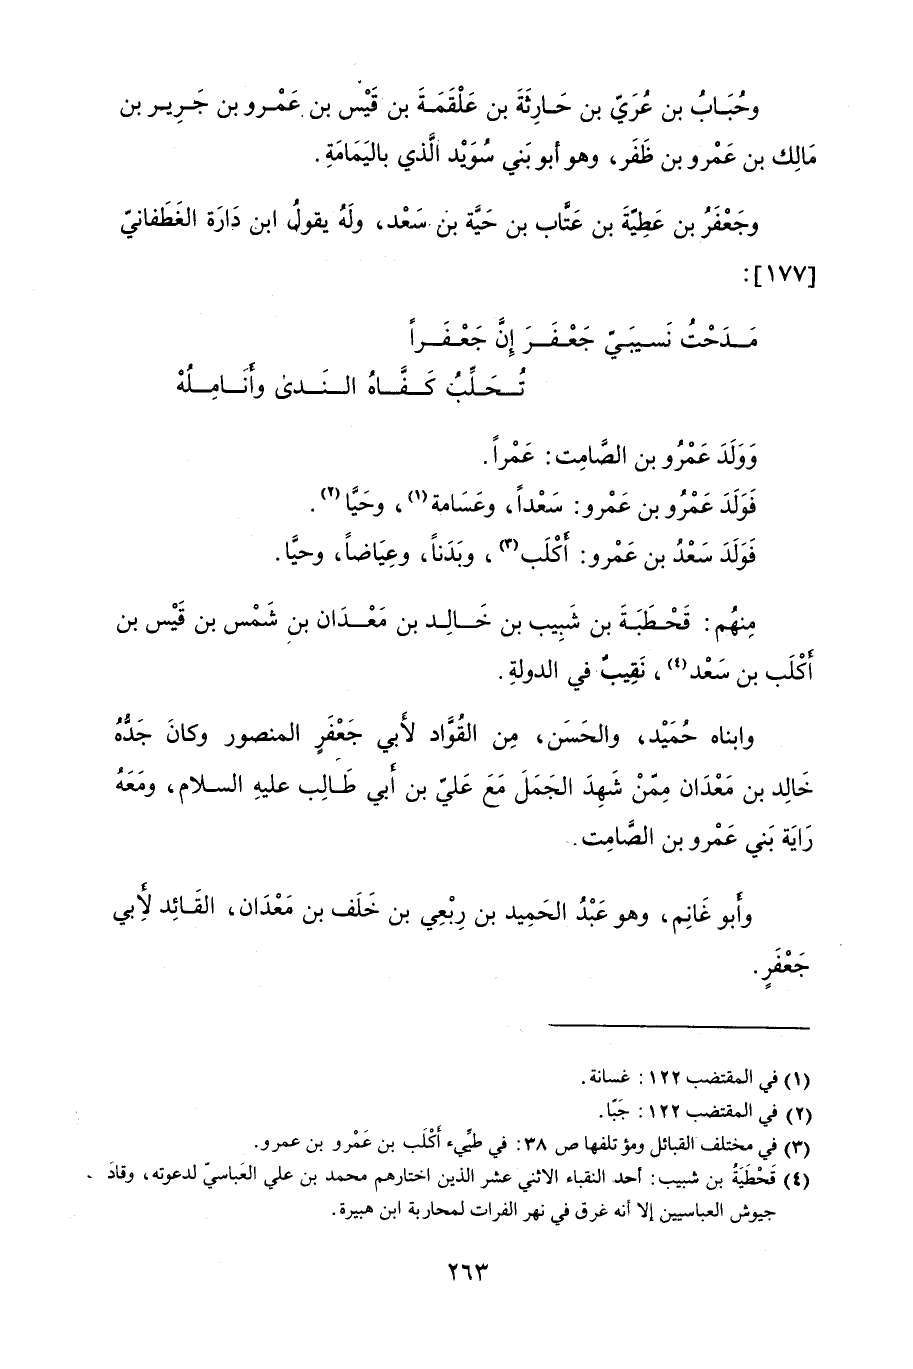 وحُبَابُ بن عُرَيّ بن حَارِثَةَ بن عَلْقَمَةَ بن قَيْس بن عَمْرو بن جَرِير بن
مَالِك بن عَمْرو بن ظَفَر، وهو أبو بَني سُوَيْد الَّذي باليَمَامَةِ.
وجَعْفَرُ بن عَطِيَّةَ بن عَتَّاب بن حَيَّة بن سَعْد، ولَهُ يقولُ ابن دَارَة الغَطَفانيّ
[١٧٧]:
مَدَحْتُ نَسِيبَيّ جَعْفَرَ إِنَّ جَعْفَراً
تُحَلِّبُ كَفَّاهُ النَدىٰ وأَنَامِلُهْ
وَوَلَدَ عَمْرُو بن الصَّامِت: عَمْراً.
فَوَلَدَ عَمْرُو بن عَمْرو: سَعْداً، وعَسَامة(١)، وحَيَّا(٢).
فَوَلَدَ سَعْدُ بن عَمْرو: أَكْلَب(٣)، وبَدَناً، وعِيَاضاً، وحيَّا.
مِنهُم: قَحْطَبَةَ بن شَبِيب بن خَالِد بن مَعْدَان بن شَمْس بن قَيْس بن
أَكْلَب بن سَعْد(٤)، نَقِيبٌ في الدولةِ.
وابناه حُمَيْد، والحَسَن، مِن القُوَّاد لأَبي جَعْفَرٍ المنصور وكانَ جَدُّهُ
خَالِد بن مَعْدَان مِمّنْ شَهِدَ الجَمَلَ مَعَ عَليّ بن أَبي طَالِب عليهِ السلام، ومَعَهُ
رَايَة بَني عَمْرو بن الصَّامِت.
وأَبو غَانِم، وهو عَبْدُ الحَمِيد بن رِبْعِي بن خَلَف بن مَعْدَان، القَائِد لأَبِي
جَعْفَرٍ.
(١) في المقتضب ١٢٢: غسانة.
(٢) في المقتضب ١٢٢: جَبَّا.
(٣) في مختلف القبائل ومؤتلفها ص ٣٨: في طيِّىء أَكْلَب بن عَمْرو بن عمرو.
(٤) قَحْطَبَةُ بن شبيب: أحد النقباء الاثني عشر الذين اختارهم محمد بن علي العَباسيّ لدعوته، وقادَ
جيوش العباسيين إلا أنه غرق في نهر الفرات لمحاربة ابن هبيرة.
٢٦٣